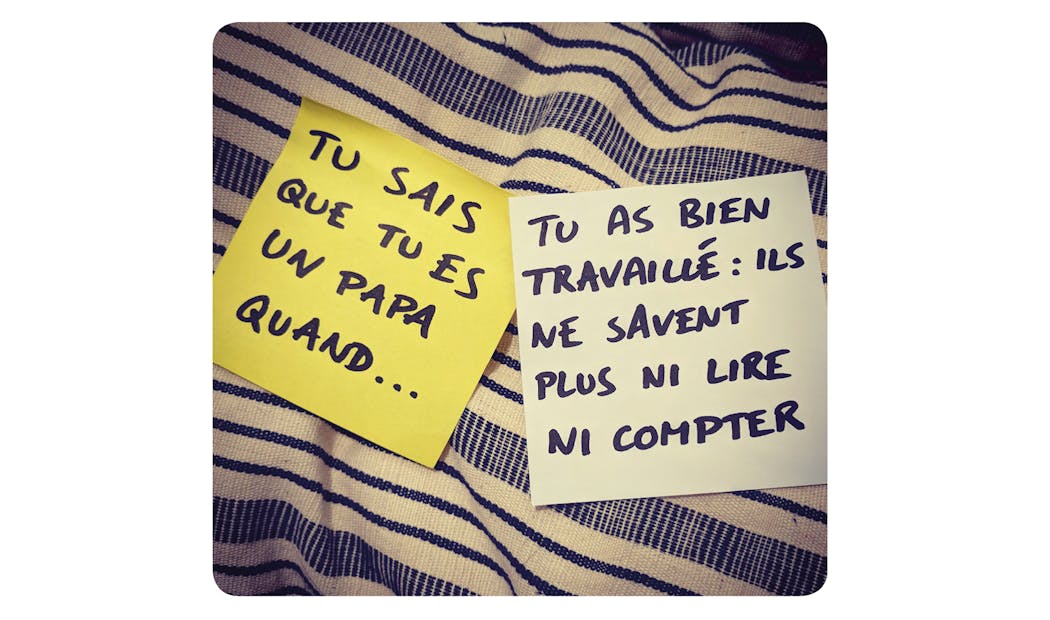 TU SAIS
QUE TU ES
UN PAPA
QUAND...
TU AS BIEN
TRAVAILLÉ : ILS
NE SAVENT
PLUS NI LIRE
NI COMPTER